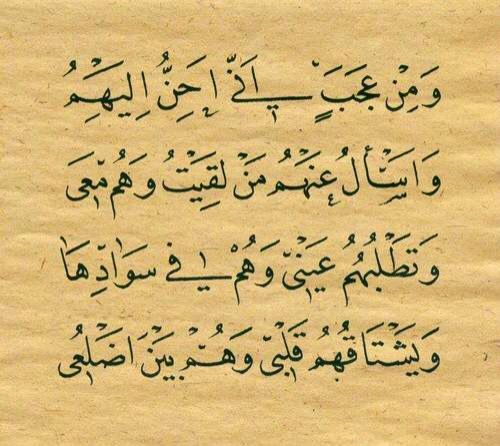 وَمِنْ عَجَبٍ أَنِّي أَحِنُّ إِلَيْهِمُ
وَأَسْأَلُ عَنْهُمُ مَنْ لَقِيتُ وَهُمْ مَعِي
وَتَطْلُبُهُمُ عَيْنِي وَهُمْ فِي سَوَادِهَا
وَيَشْتَاقُهُمُ قَلْبِي وَهُمْ بَيْنَ أَضْلُعِي